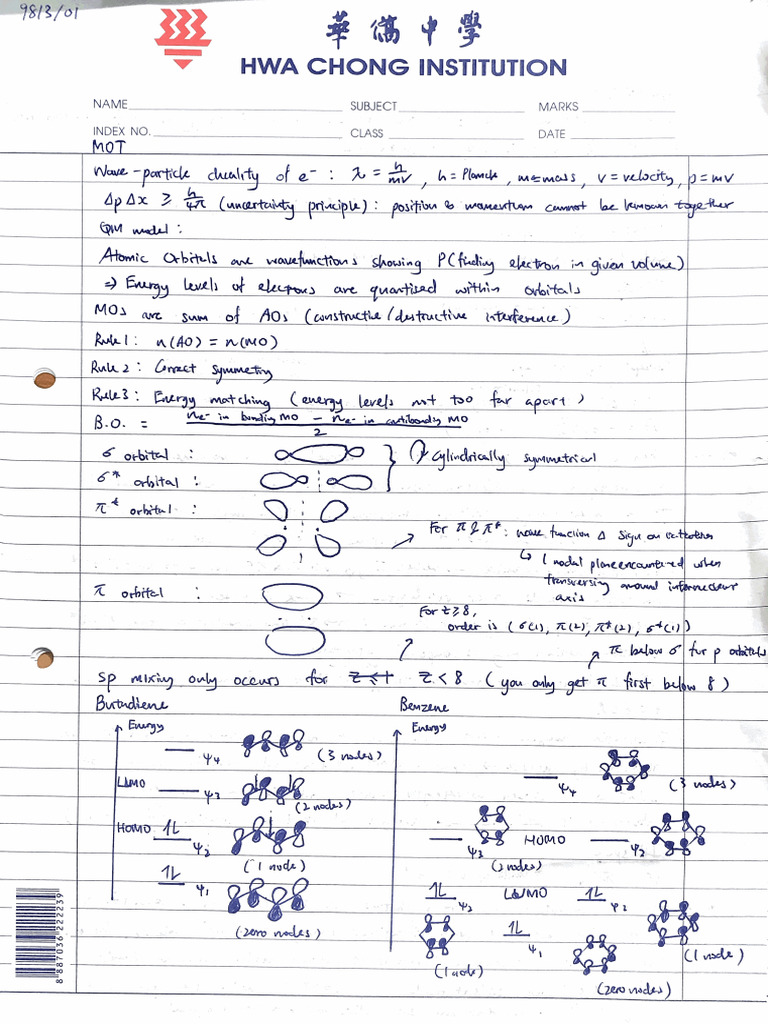 9813/01
華僑中學
HWA CHONG INSTITUTION
NAME SUBJECT MARKS
INDEX NO. CLASS DATE
MOT
Wave-particle duality of e⁻ : λ = h/mv , h = Planck, m = mass, v = velocity, p = mv
ΔpΔx ≥ h/4π (uncertainty principle) : position & momentum cannot be known together
QM model :
Atomic Orbitals are wavefunctions showing P(finding electron in given volume)
⇒ Energy levels of electrons are quantised within orbitals
MOs are sum of AOs (constructive/destructive interference)
Rule 1 : n(AO) = n(MO)
Rule 2 : Correct symmetry
Rule 3 : Energy matching (energy levels not too far apart)
B.O. = (n e⁻ in bonding MO − n e⁻ in antibonding MO) / 2
σ orbital : cylindrically symmetrical
σ* orbital :
π* orbital :
For π & π* : wave function Δ sign on
↳ 1 nodal plane encountered when
transversing around internuclear
axis
π orbital :
For Z ≥ 8,
order is (σ(1), π(2), π*(2), σ*(1))
π below σ for p orbitals
sp mixing only occurs for Z < 8 (you only get π first below 8)
Butadiene Benzene
Energy Energy
ψ4 (3 nodes) ψ4 (3 nodes)
LUMO ψ3 (2 nodes)
HOMO ψ2 (1 node) ψ3 (2 nodes) HOMO ψ2
ψ1 (zero nodes) ψ2 LUMO ψ2
(1 node) ψ1 (zero nodes) (1 node)
8 887036 222239